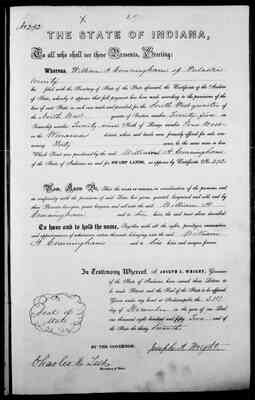 No 292
THE STATE OF INDIANA,
To all who shall see these Presents, Greeting:
Whereas, William A Cunningham of Pulaski
County
has filed with the Secretary of State of the State aforesaid, the Certificate of the Auditor
of State, whereby it appears that full payment has been made according to the provisions of the
law of said State in such case made and provided for the South West quarter of
the North West quarter of Section numbered Twenty five in
Township number Twenty nine North of Range number Four West
in the Winamac District
containing Forty acres,
Which Tract was purchased by the said William A Cunningham
of the State of Indiana as and for SWAMP LANDS, as appears by Certificate No. 292
Now, Know Ye, That the
and in conformity with the provisions of said
these Presents
Cunningham and to his heirs, the said tract above described
To have and to hold the same, Together with all the rights, privileges, immunities
and appurtenances of whatsoever nature thereunto belonging, unto the said William
A Cunningham and to his heirs and assigns forever.
In Testimony Whereof, I, JOSEPH A. WRIGHT, Governor
of the State of Indiana, have caused these Letters to
be made Patent, and the Seal of the State to be affixed.
Given under my hand at Indianapolis, the
day of December in the year of our Lord
one thousand eight hundred and fifty five and of the
State the thirty
Seal of
State
BY THE GOVERNOR,
Joseph A. Wright
Charles H. Test
Secretary of State